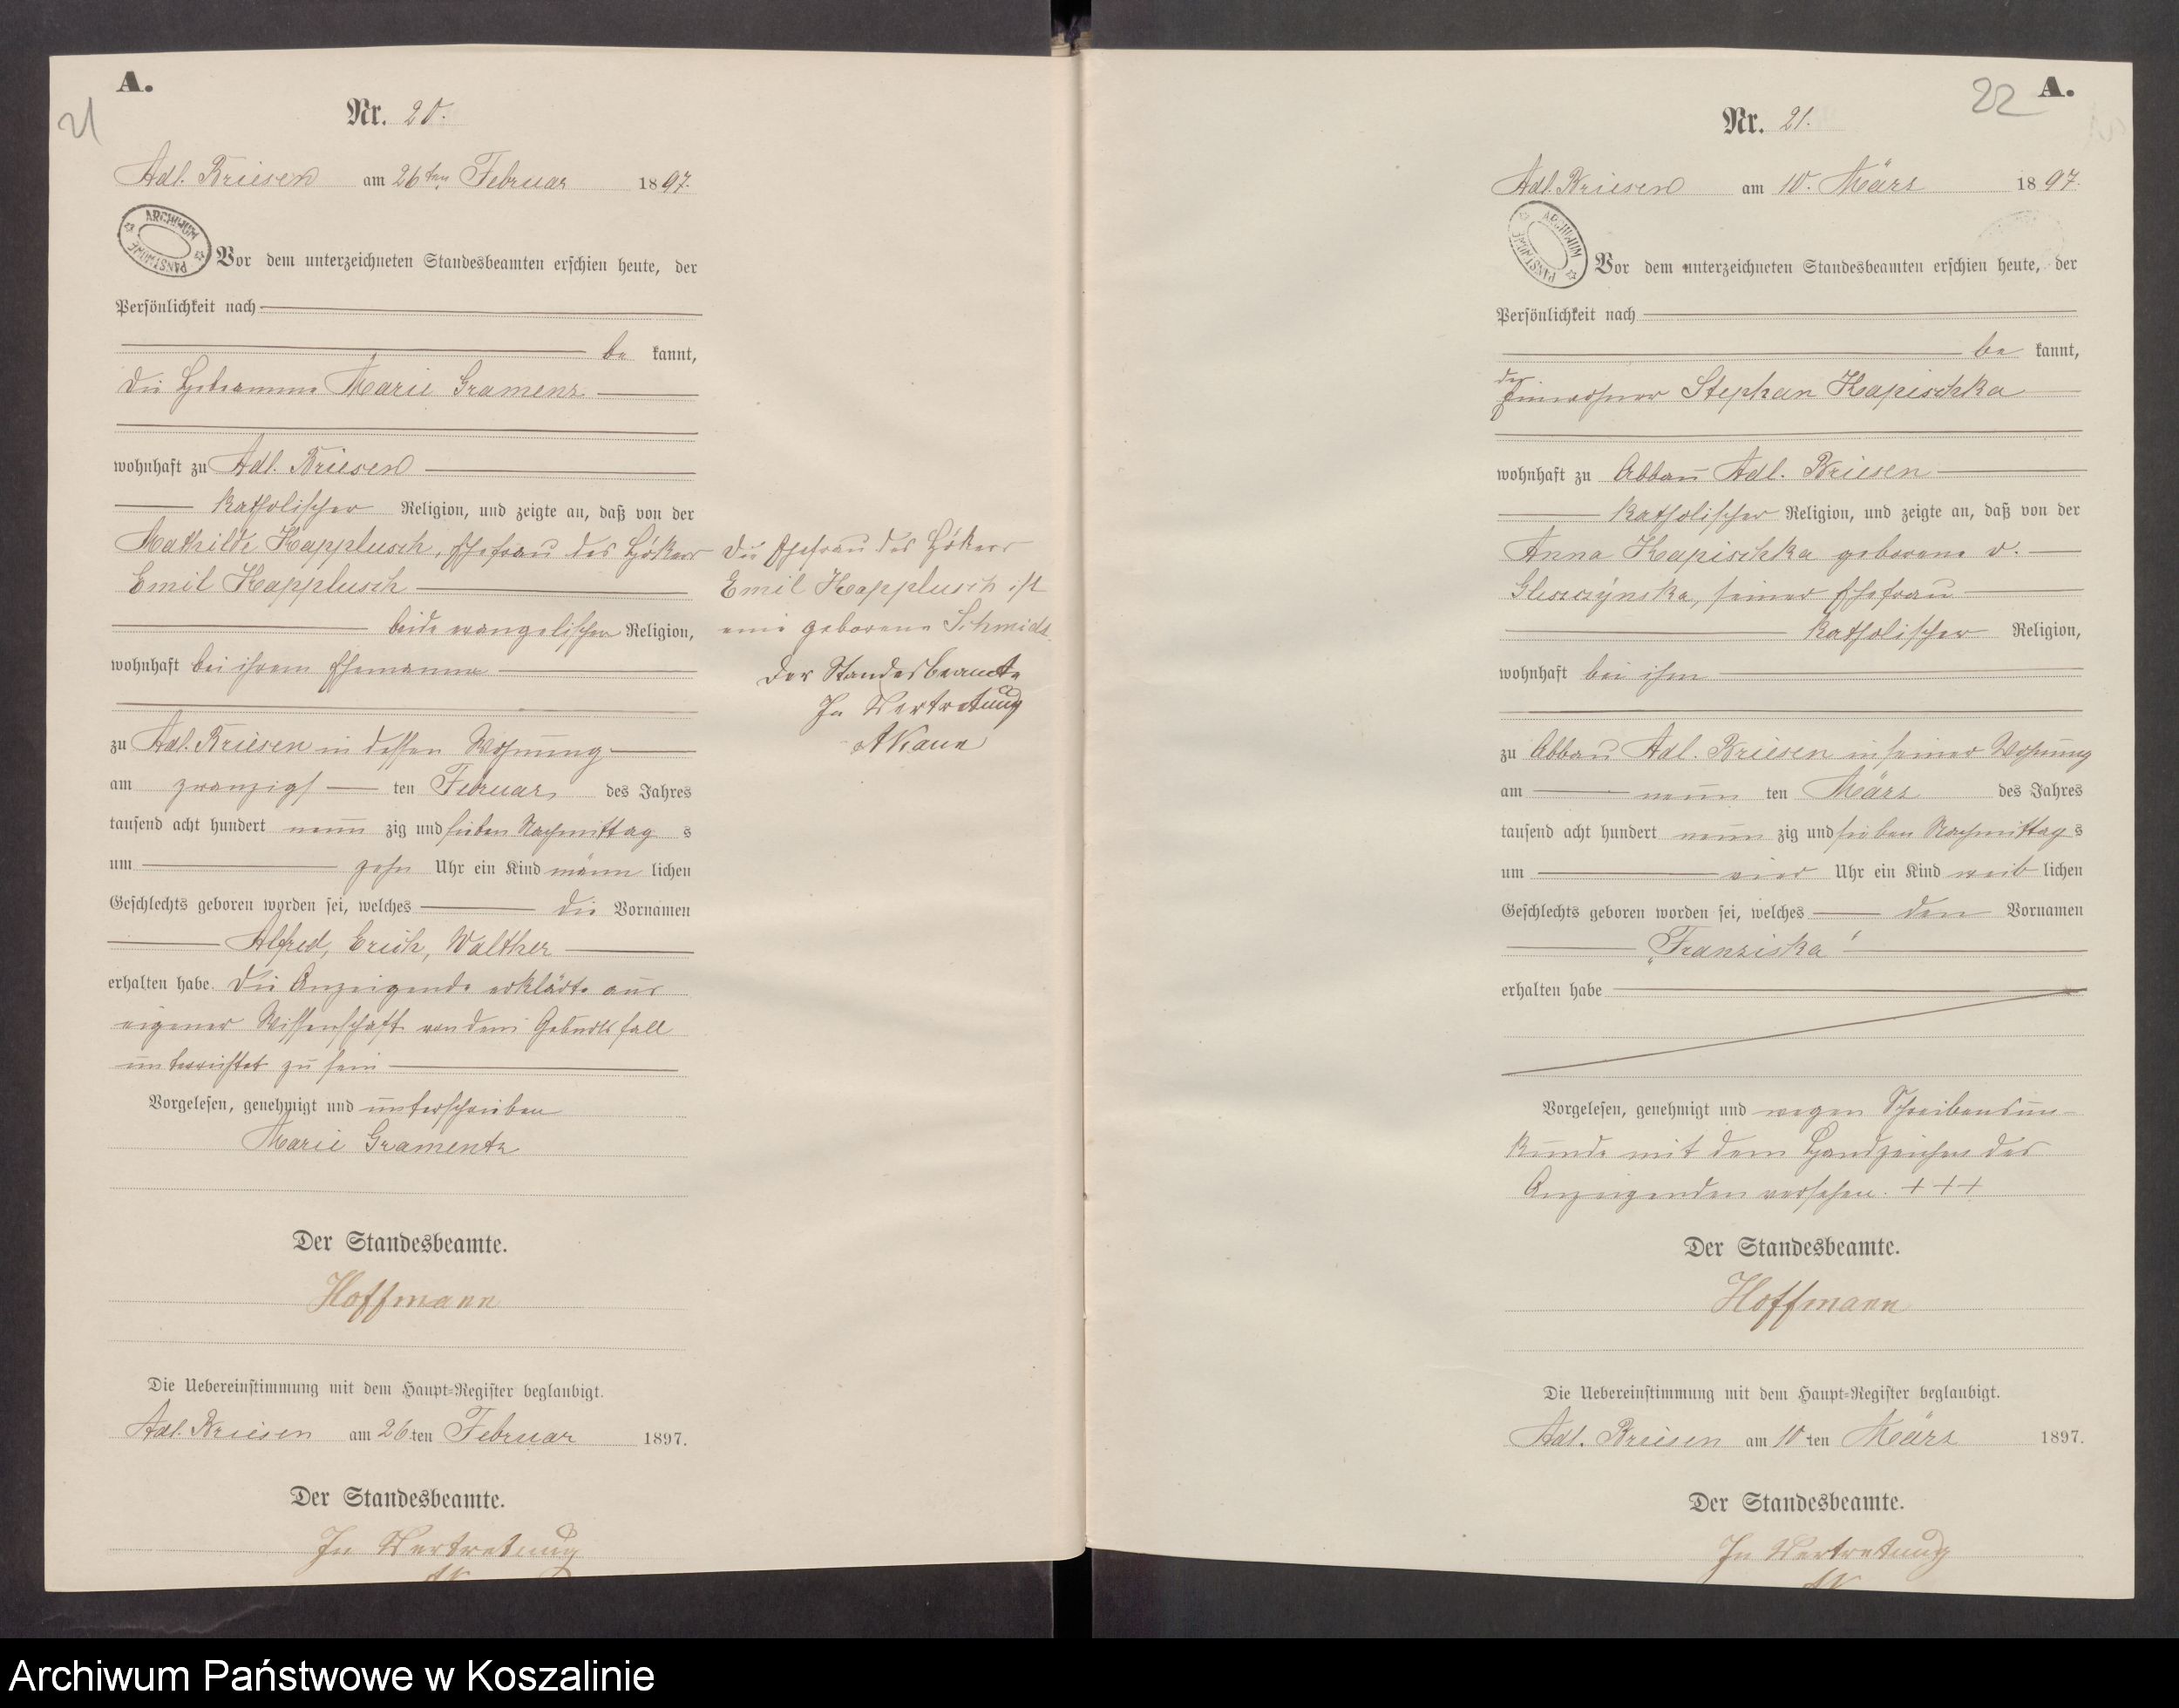 A.
21
Nr. 20.
Adl. Briesen am 26ten Februar 1897.
ARCHIWUM PAŃSTWOWE
Vor dem unterzeichneten Standesbeamten erschien heute, der
Persönlichkeit nach
be kannt,
die Hebeamme Marie Gramenz
wohnhaft zu Adl. Briesen
katholischer Religion, und zeigte an, daß von der
Mathilde Kapplusch, Ehefrau des Hökers
Emil Kapplusch
beide evangelischer Religion,
wohnhaft bei ihrem Ehemanne
zu Adl. Briesen in dessen Wohnung
am zwanzigs ten Februar des Jahres
tausend acht hundert neun zig und sieben Nachmittag s
um zehn Uhr ein Kind männ lichen
Geschlechts geboren worden sei, welches die Vornamen
Alfred, Erich, Walther
erhalten habe. Die Anzeigende erklärte aus
eigener Wissenschaft von dem Geburtsfall
unterrichtet zu sein
Vorgelesen, genehmigt und unterschrieben
Marie Gramentz
Der Standesbeamte.
Hoffmann
Die Uebereinstimmung mit dem Haupt-Register beglaubigt.
Adl. Briesen am 26 ten Februar 1897.
Der Standesbeamte.
In Vertretung
Die Ehefrau des Hökers
Emil Kapplusch ist
eine geborene Schmidt.
Der Standesbeamte
In Vertretung
22 A.
Nr. 21.
Adl. Briesen am 10. März 1897.
ARCHIWUM PAŃSTWOWE
Vor dem unterzeichneten Standesbeamten erschien heute, der
Persönlichkeit nach
be kannt,
der
Einwohner Stephan Kapischka
wohnhaft zu Abbau Adl. Briesen
katholischer Religion, und zeigte an, daß von der
Anna Kapischka geborene v.
Gleszczynska, seiner Ehefrau
katholischer Religion,
wohnhaft bei ihm
zu Abbau Adl. Briesen in seiner Wohnung
am neun ten März des Jahres
tausend acht hundert neun zig und sieben Nachmittag s
um vier Uhr ein Kind weib lichen
Geschlechts geboren worden sei, welches den Vornamen
„Franziska"
erhalten habe
Vorgelesen, genehmigt und wegen Schreibensun-
kunde mit dem Handzeichen des
Anzeigenden versehen. +++
Der Standesbeamte.
Hoffmann
Die Uebereinstimmung mit dem Haupt-Register beglaubigt.
Adl. Briesen am 10 ten März 1897.
Der Standesbeamte.
In Vertretung
Archiwum Państwowe w Koszalinie